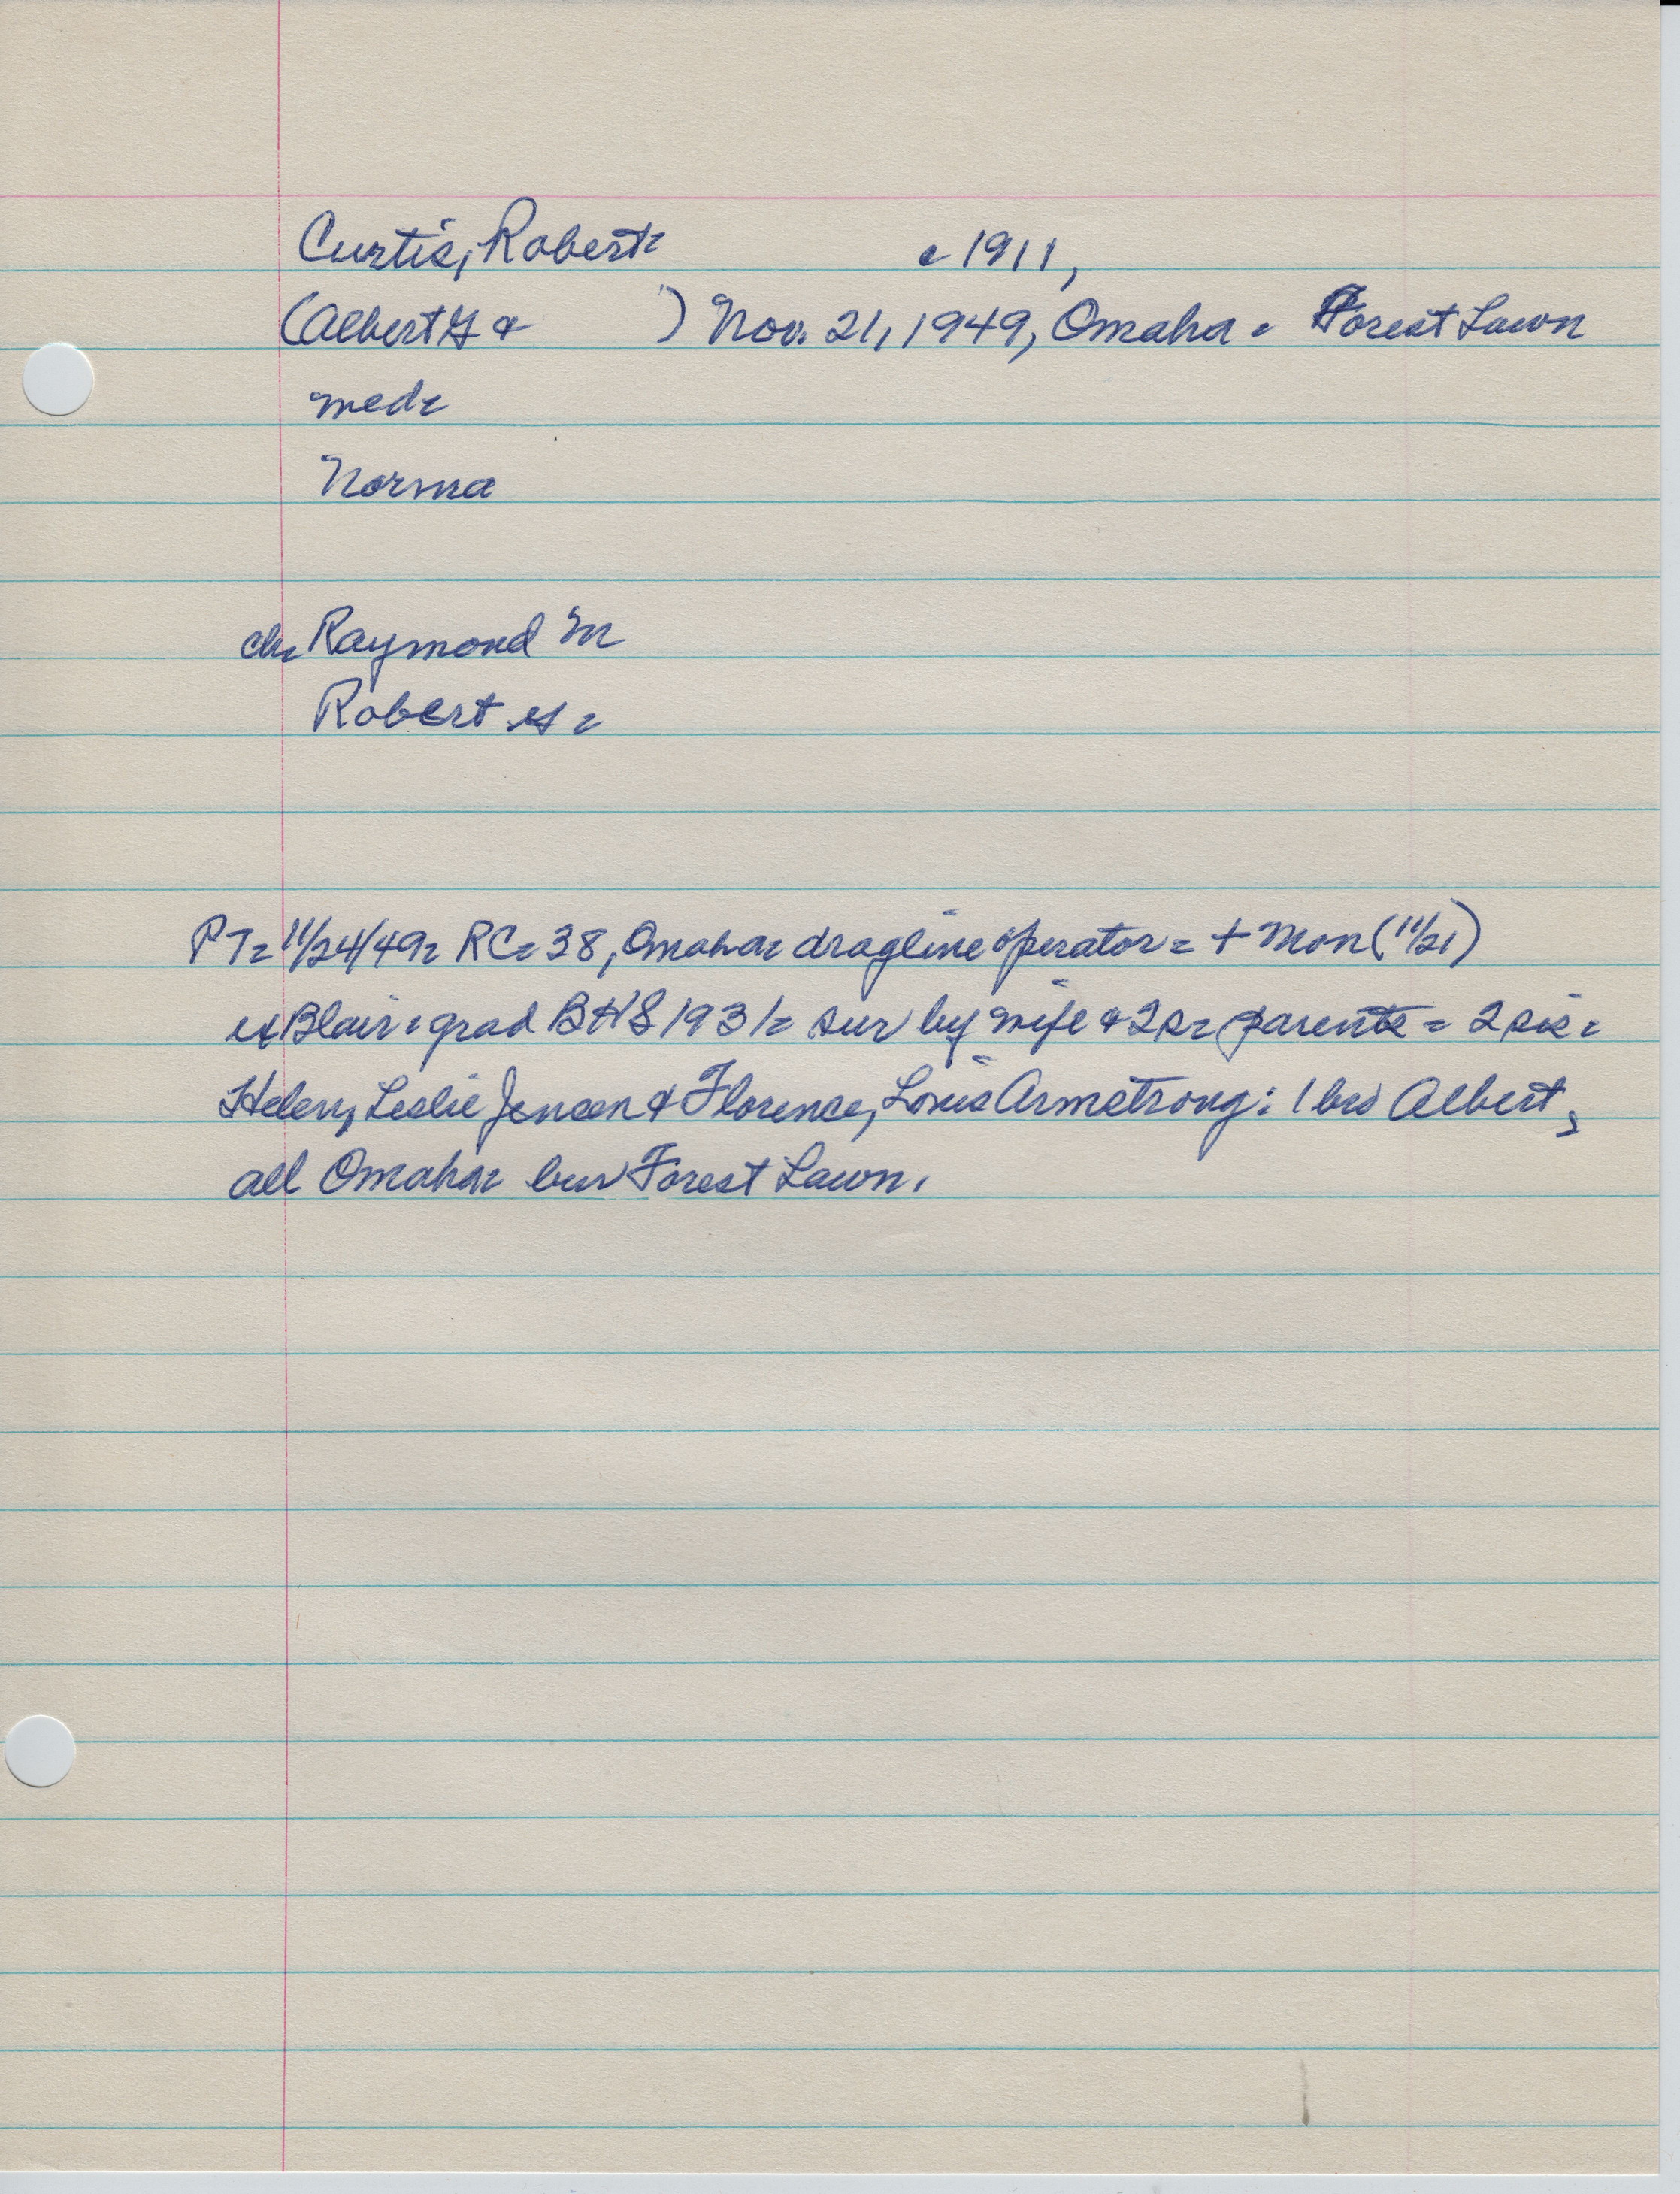 Curtis, Robert- c 1911,
(Albert G & ) Nov. 21, 1949, Omaha - Forest Lawn
med-
Norma
ch- Raymond M
Robert G -
PT- 11/24/49- RC- 38, Omaha- dragline operator - + Mon (11/21)
ex Blair - grad BHS 1931- sur by wife & 2s- parents - 2 sis -
Helen, Leslie Jensen & Florence, Louis Armstrong : 1 bro Albert,
all Omaha- bur Forest Lawn.